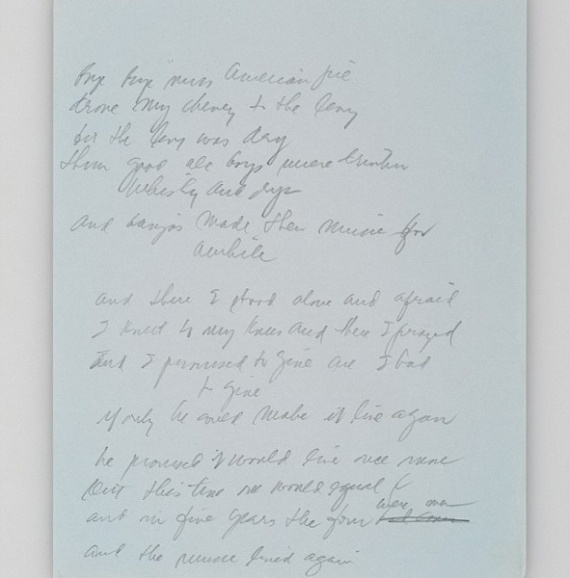 bye bye miss American pie
drove my chevy to the levy
but the levy was dry
them good ole boys were drinkin
Whisky and rye
and banjos made their music for
awhile
and there I stood alone and afraid
I knelt to my knees and there I prayed
And I promised to give all I had
to give
if only he could make it live again
he promised it would live once more
but this time one would equal
and in five years the four were
and the music lived again